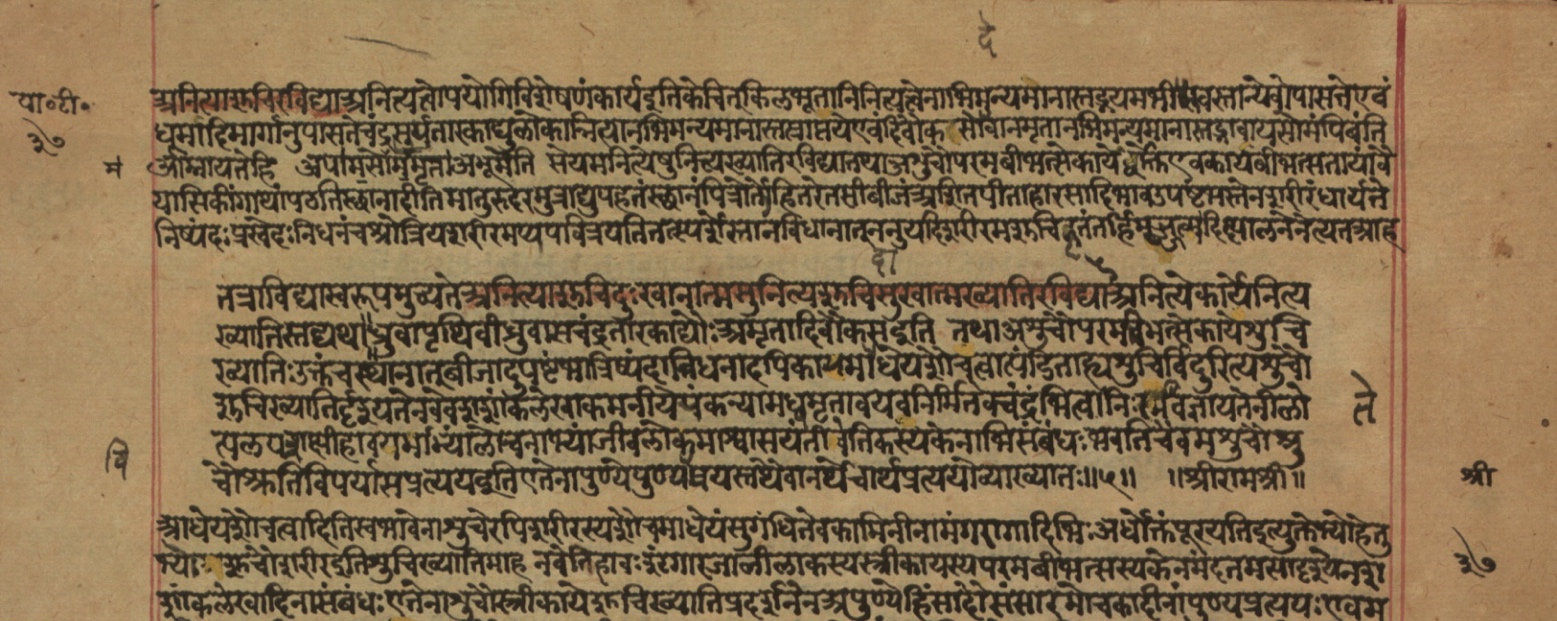 दे
पा॰टी॰
३७
अनित्याशुचिरविद्या अनित्यत्वोपयोगिविशेषणं कार्यइतिकेचित्किलभूतानिनित्यत्वेनाभिमन्यमानास्तद्रूपमभी स्तान्येवोपासते एवं
धूमादिमार्गानुपासतेचंद्रसूर्यतारकाद्युलोकान्नित्यानभिमन्यमानास्तत्प्राप्तये एवं दिवौकसोदेवानमृतानभिमन्यमानास्तद्भावायसोमंपिबंति
म आम्नायतेहि अपामसोममृता अभूमेति सेयमनित्येषुनित्यख्यातिरविद्या तथाअशुचौपरमबीभत्सेकाये कायबीभत्सतायांवै
यासिकींगाथांपठतिस्थानादीति मातुरुदरमूत्राद्युपहतंस्थानंपित्रोर्लोहितरेतसीबीजं अशितपीताहाररसादिभाव उपष्टंभस्तेनशरीरंधार्यते
निष्यंदः प्रस्वेदः निधनंचश्रोत्रियशरीरमप्यपवित्रयति तत्स्पर्शेस्नानविधानात् ननुयदिशरीरमशुचि तर्हि क्षालनेनेत्यतआह
दा
तत्राविद्यास्वरूपमुच्यते अनित्याशुचिदुःखानात्मसुनित्यशुचिसुखात्मख्यातिरविद्या अनित्येकार्येनित्य
ख्यातिस्तद्यथा ध्रुवापृथिवीध्रुवासचंद्रतारकाद्यौः अमृतादिवौकसइति तथाअशुचौपरमबीभत्सेकायेशुचि
ख्यातिः उक्तंच स्थानात्बीजादुपष्टंभान्निष्यंदान्निधनादपिकायमाधेयशौचत्वात्पंडिताह्यशुचिंविदुरित्यशुचौ
शुचिख्यातिर्दृश्यतेनवेवशशांकलेखाकमनीयेयंकन्यामध्वमृतावयवनिर्मितेवचंद्रंभित्वानिःसृतेवज्ञायतेनीलो
ते
त्पलपत्रायताक्षीहावगर्भाभ्यांलोचनाभ्यांजीवलोकमाश्वासयंतीवेतिकस्यकेनाभिसंबंधः भवतिचैवमशुचौशु
वि
चौख्यातिविपर्यासप्रत्ययइति एतेनापुण्येपुण्यप्रत्ययस्तथैवानर्थेचार्थप्रत्ययोव्याख्यातः॥५॥ ॥श्रीरामश्री॥
श्री
आधेयशौचत्वादिति स्वभावेनाशुचेरपिशरीरस्यशौचमाधेयं सुगंधितेवकामिनीनामंगरागादिभिः अर्धोक्तंपूरयति इत्युक्तेभ्योहेतु
भ्यो अशुचौशरीरइति शुचिख्यातिमाह नवेति हावः शृंगारजालीलाकस्यस्त्रीकायस्यपरमबीभत्सस्यकेनमंदतमसादृश्येनशशां
३७
शांकलेखादिनासंबंधः एतेनाशुचौस्त्रीकायेशुचिख्यातिप्रदर्शनेन अपुण्येहिंसादौसंसारमोचकादीनांपुण्यप्रत्ययः एवम